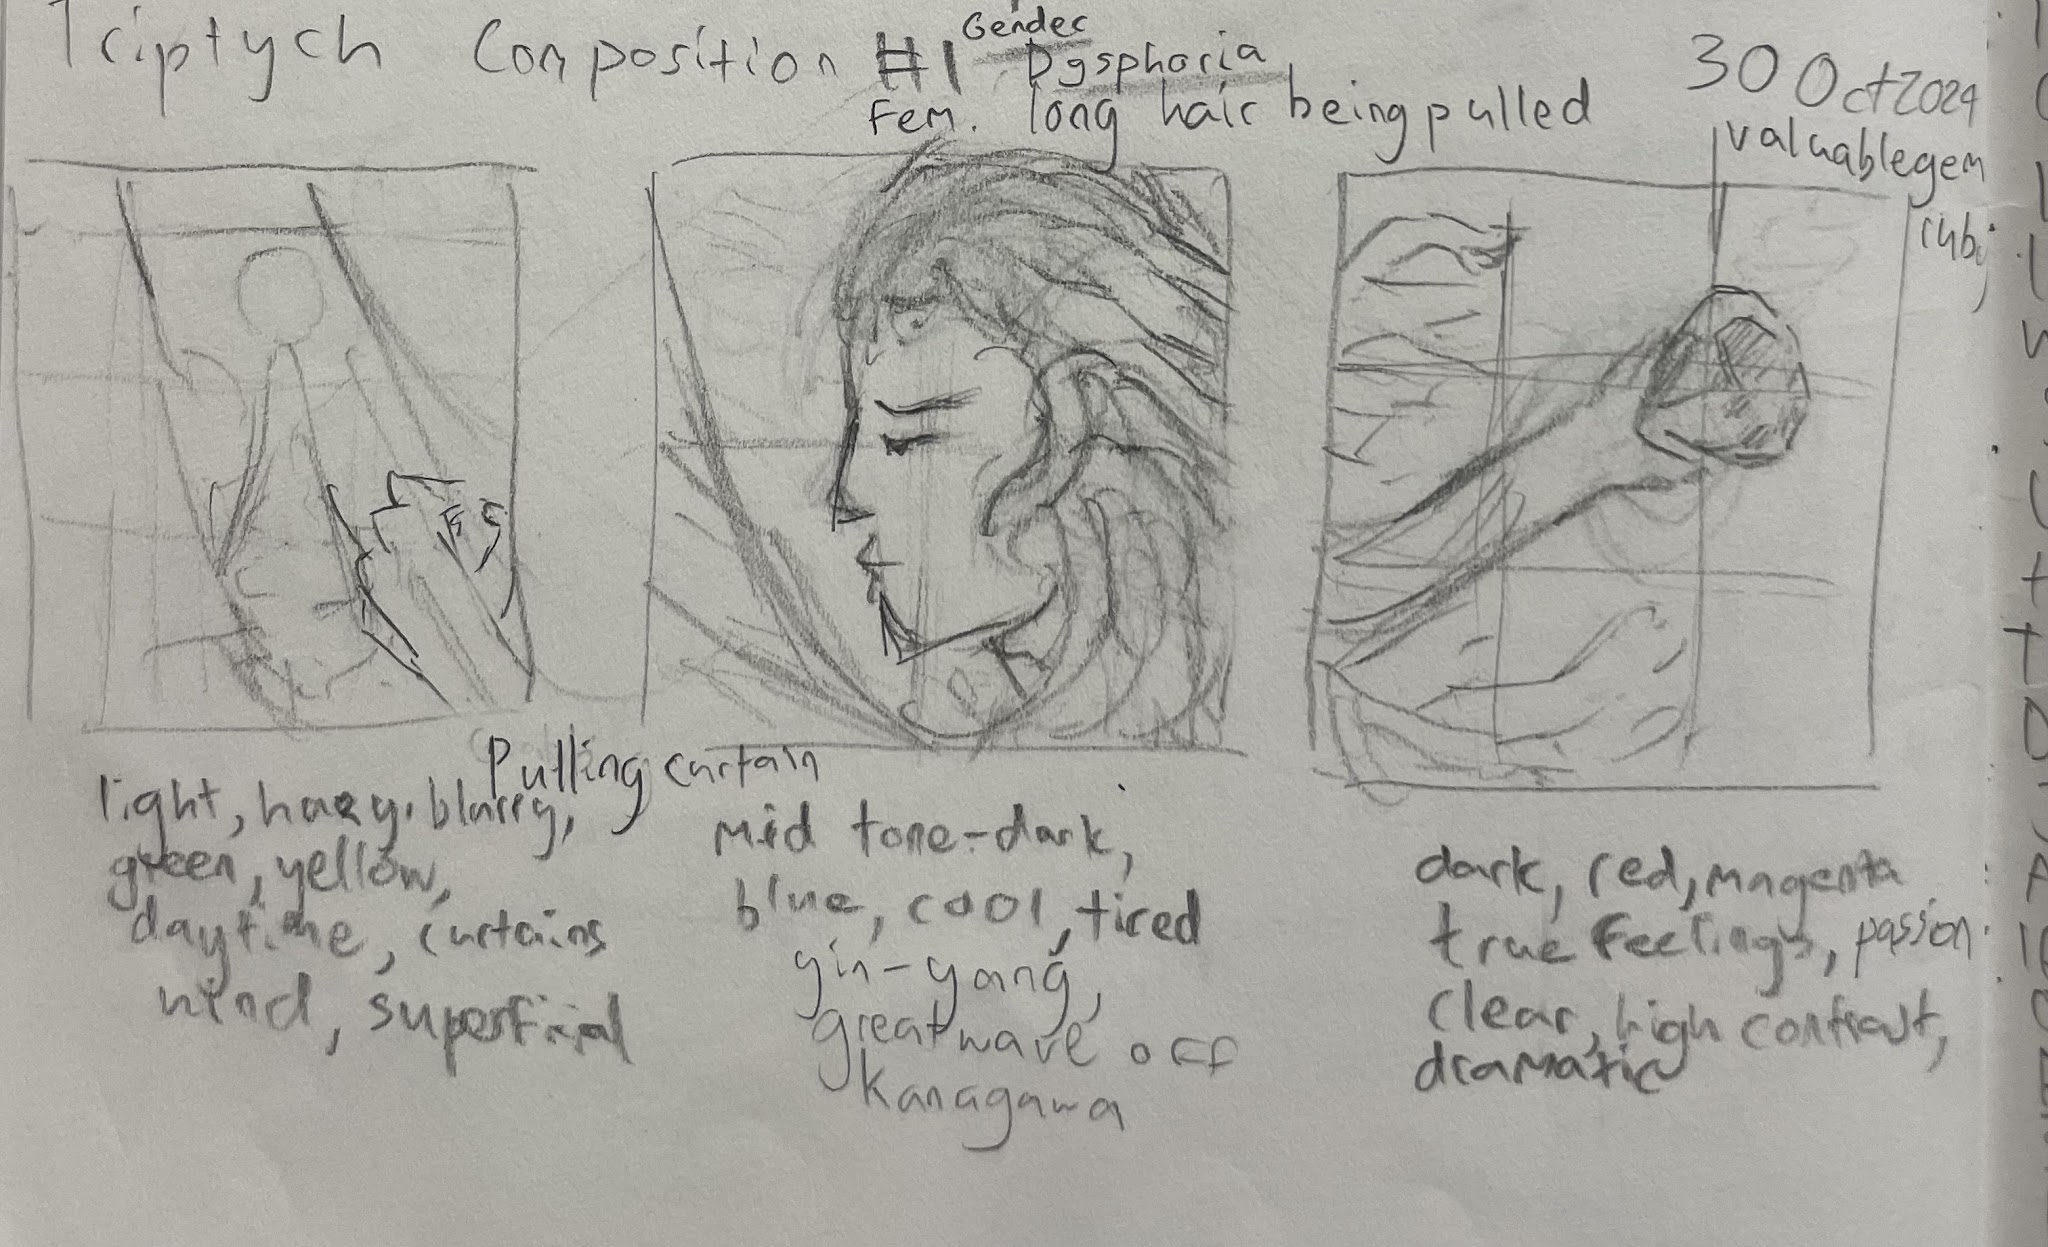 Triptych Composition #1 Gender Dysphoria
Fem. long hair being pulled
30 Oct 2024
valuable gem
ruby
Pulling curtain
light, hazy, blurry,
green, yellow,
daytime, curtains
wind, superficial
mid tone-dark,
blue, cool, tired
yin-yang,
great wave off
Kanagawa
dark, red, magenta
true feelings, passion
clear, high contrast,
dramatic